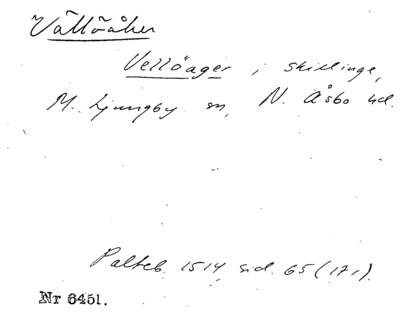 Vällöåker
Vellöager i Skillinge,
M. Ljungby sn, N. Åsbo hd.
Palteb. 1514, sid. 65 (171).
Nr 6451.